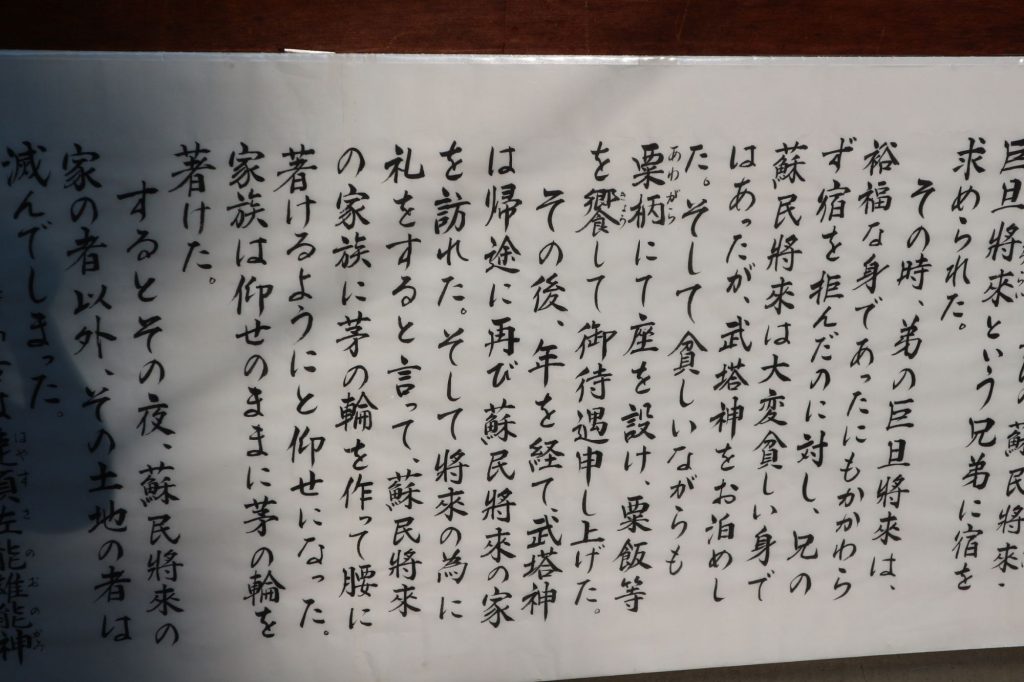 巨旦將來
蘇民將來・
巨旦將來という兄弟に宿を
求められた。
その時、弟の巨旦將来は、
裕福な身であったにもかかわら
ず宿を拒んだのに対し、兄の
蘇民將来は大変貧しい身で
はあったが、武塔神をお泊めし
た。そして貧しいながらも
粟柄にて座を設け、粟飯等
あわがら
を饗して御待遇申し上げた。
きょう
その後、年を経て、武塔神
は帰途に再び蘇民將來の家
を訪れた。そして將来の為に
礼をすると言って、蘇民將来
の家族に茅の輪を作って腰に
著けるようにと仰せになった。
家族は仰せのままに茅の輪を
著けた。
するとその夜、蘇民將来の
家の者以外、その土地の者は
滅んでしまった。
速須佐能雄能神
はやすさのおのかみ